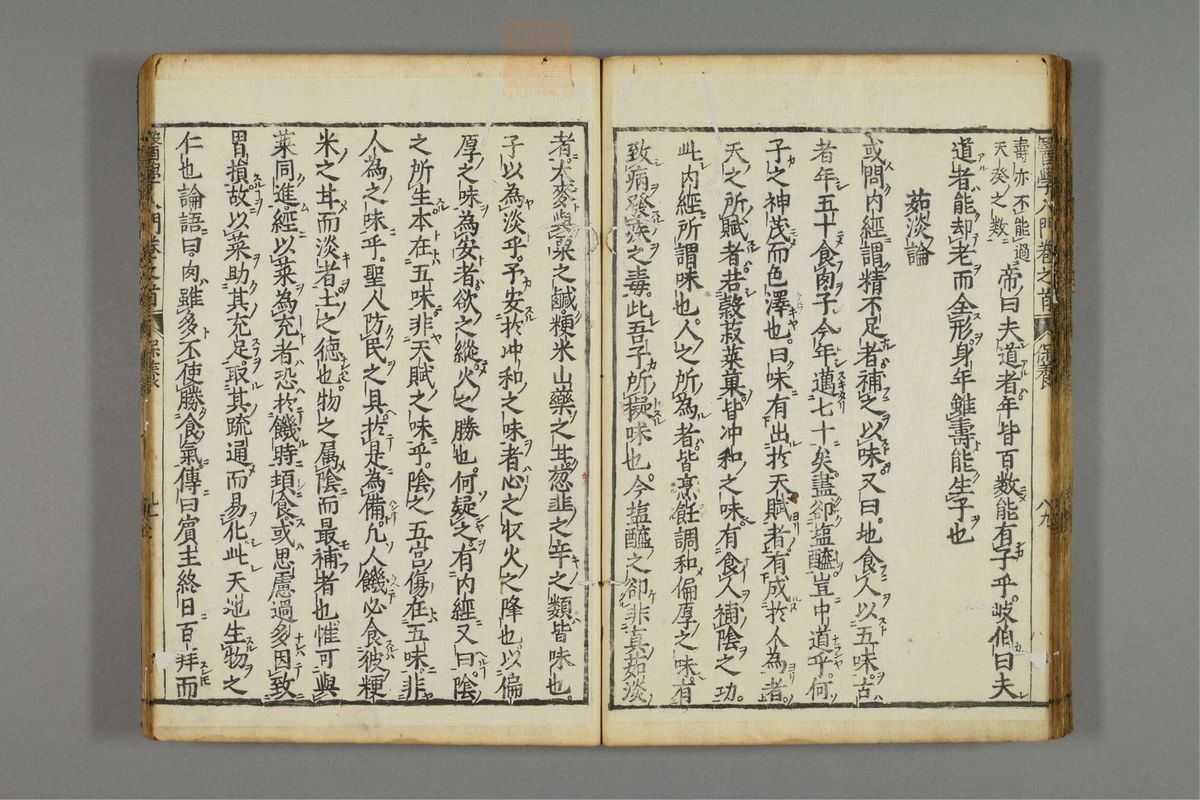 醫學入門卷之首
保養
壽亦不能過
天癸之數
帝曰夫道者年皆百數能有子乎岐伯曰夫
道者能却老而全形身年雖壽能生子也
茹淡論
或問內經謂精不足者補之以味又曰地食人以五味古
者年五十食肉子今年邁七十矣盡卻塩醯豈中道乎何
子之神茂而色澤也曰味有出於天賦者有成於人為者
天之所賦者若穀菽菜菓皆冲和之味有食人補陰之功
此內經所謂味也人之所為者皆烹飪調和偏厚之味有
致病發疾之毒此吾子所擬味也今塩醯之卻非真茹淡
者大麥與粟之鹹粳米山藥之甘葱韭之辛之類皆味也
子以為淡乎予安於冲和之味者心之收火之降也以偏
厚之味為安者欲之縱火之勝也何疑之有內經又曰陰
之所生本在五味非天賦之味乎陰之五宮傷在五味非
人為之味乎聖人防民之具於是為備凡人饑必食彼粳
米之甘而淡者土之德也物之屬陰而最補者也惟可與
菜同進經以菜為充者恐於饑時頓食或思慮過多因致
胃損故以菜助其充足取其疏通而易化此天地生物之
仁也論語曰肉雖多不使勝食氣傳曰賓主終日百拜而